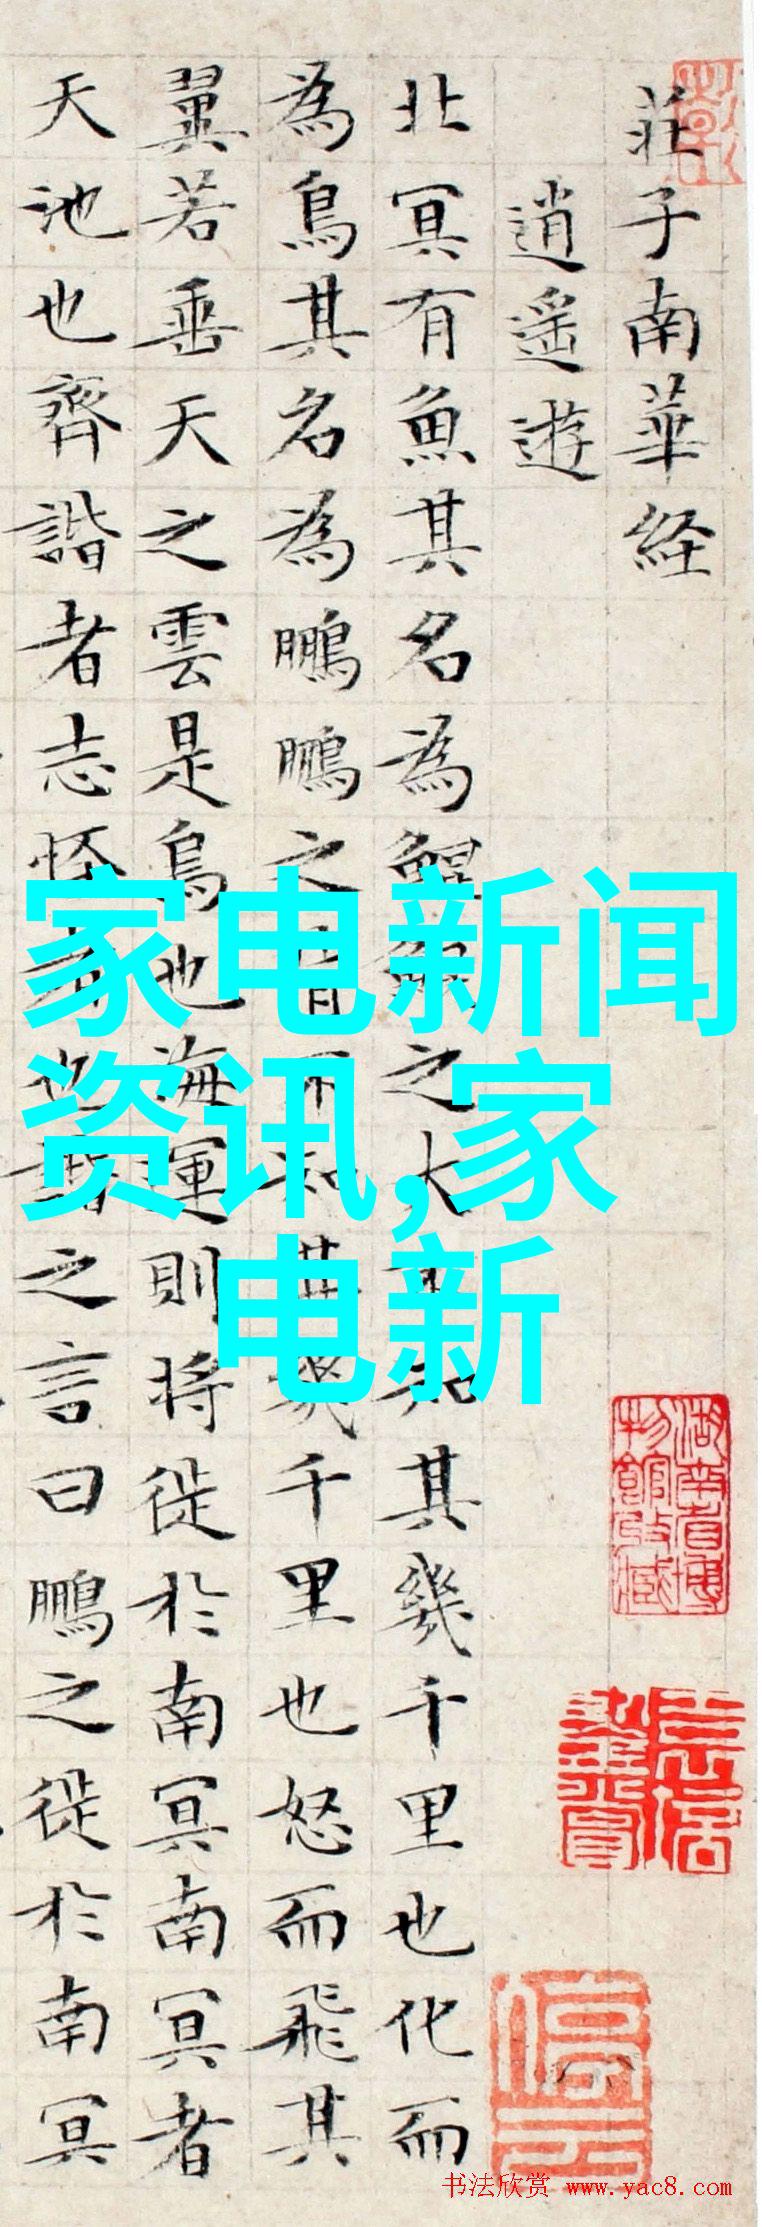 莊子南華経
逍遥遊
北冥有魚其名為鯤鯤之大不知其幾千里也化而
為鳥其名為鵬鵬之背不知其幾千里也怒而飛其
翼若垂天之雲是鳥也海運則将徙於南冥南冥者
天池也齊諧者志怪者也諧之言曰鵬之徙於南冥
家电新闻
资讯,家
电新
湖南省博物館收藏
书法欣赏 www.yac8.com